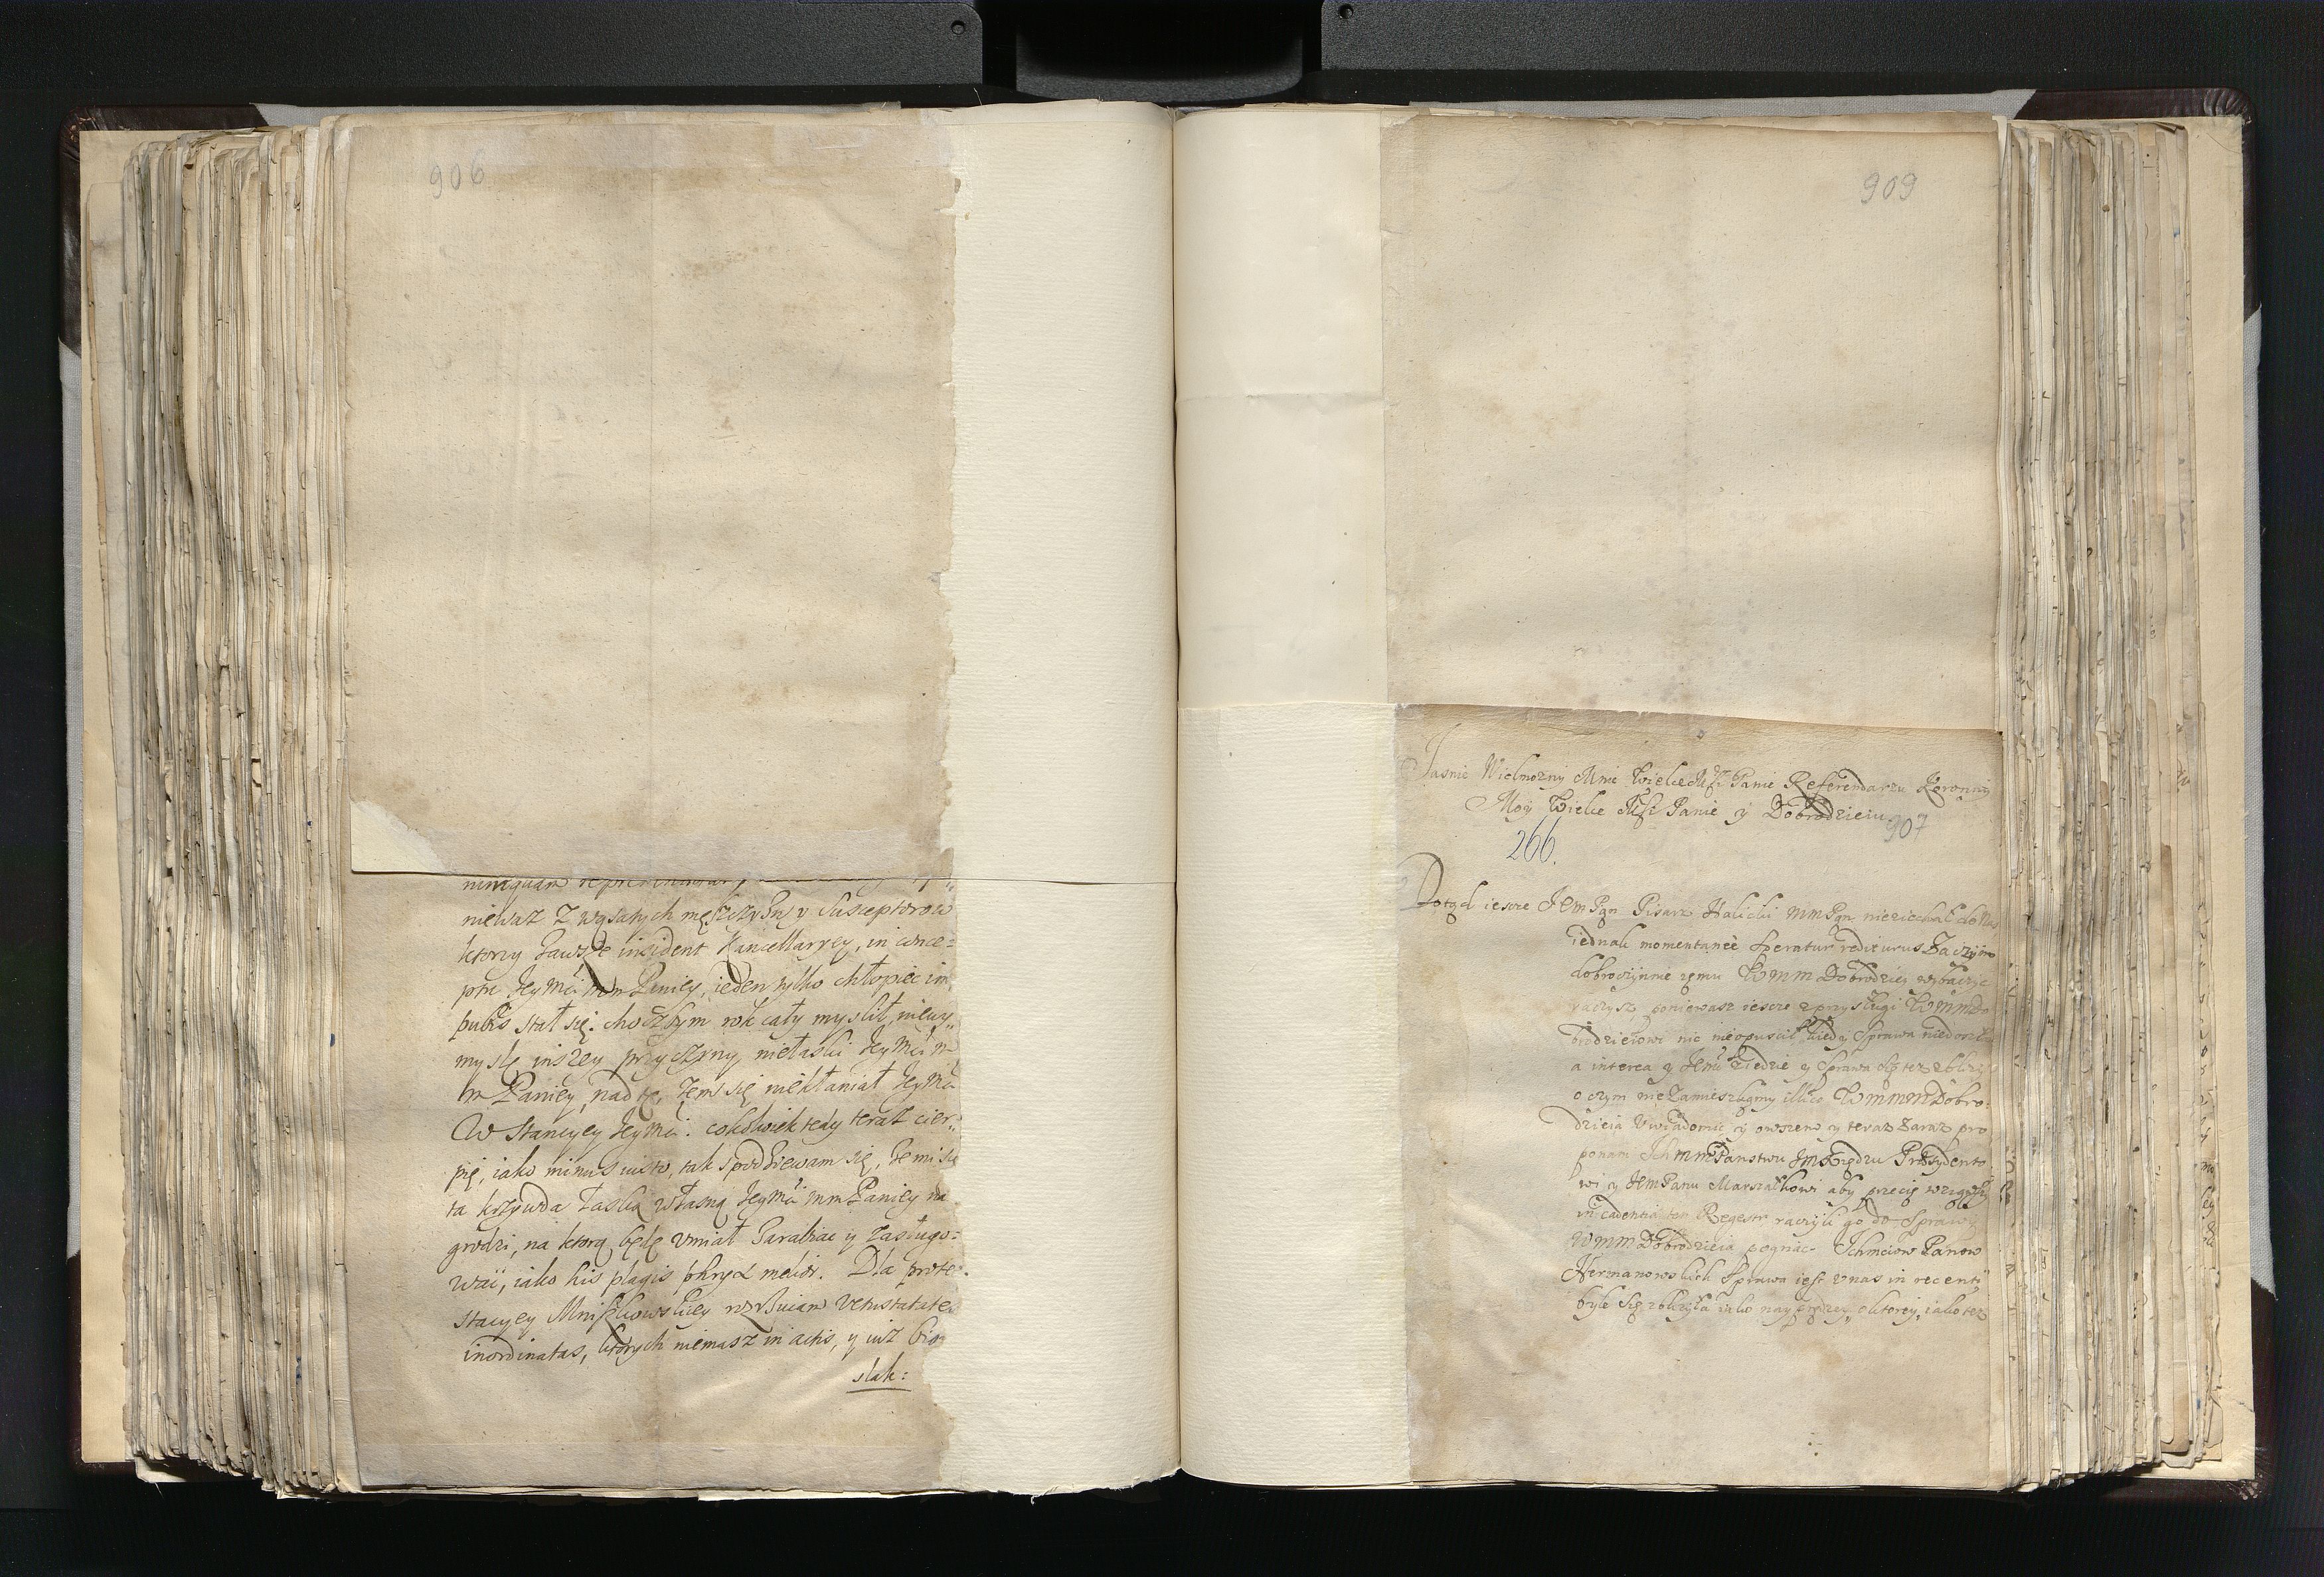 906
numquam
niewaz z wąsatych męszczyzn v Susceptorow
ktorzy zawsze insident Kancellaryey, in conce=
ptu Jeymći mm Paniey, ieden tylko chłopiec im
pubes stał się. choćbym rok cały myslił, niewy„
myslę inszey przyczyny niełaski Jeymći m
m Paniey, nad tę, żem się niekłaniał Jeymći
W Stancyey Jeymći. cokolwiek tedy teraz cier„
pię, iako minus iuste, tak spodziewam się, że mi się
ta krzywda łaską własną Jeymći mm Paniey na
grodzi, na ktorą będę vmiał zarabiac y zasługo=
wać, iako his plagis phryx melior. Dla prote„
stacyey Mniszkowskiey vetustates
inordinatas, ktorych niemasz in actis, y iuż
slak:
909
Jasnie Wielmozny Mnie Wielce Mści Panie Referendarzu Koronny
Moy Wielce Mści Panie y Dobrodzieiu
907
266.
Dotąd iescze JEm Pan Pisarz Halicki mm Pan nieziechał do Nas
iednak momentaneè speratur rediturus Zaczym
dobroczynnie iemu Wmm Dobrodziey wybaczyc
raczysz, poniewasz iescze z przysługi Wmm Do
brodzieiowi nic nieopuscił kiedy Sprawa niedoszła
a interea y Jemć ziedzie y Sprawa się tez zblizy
o czym nie zamieszkamy illico Wmmm Dobro„
dzieia Vwiadomic y owszem y teraz zaraz pro
ponam Ichmm Panstwu Jm Xiędzu Prezydento
wi y Jem Panu Marszałkowi aby przecię wziąwszy
in cadentia ten Regestr raczyli go do Sprawy
Wmm Dobrodzieia pognac. Ichmciow Panow
Hermanowskich Sprawa iest v nas in recenti
byle się zblizyła iako nayprędzey, o ktorey, iako tez